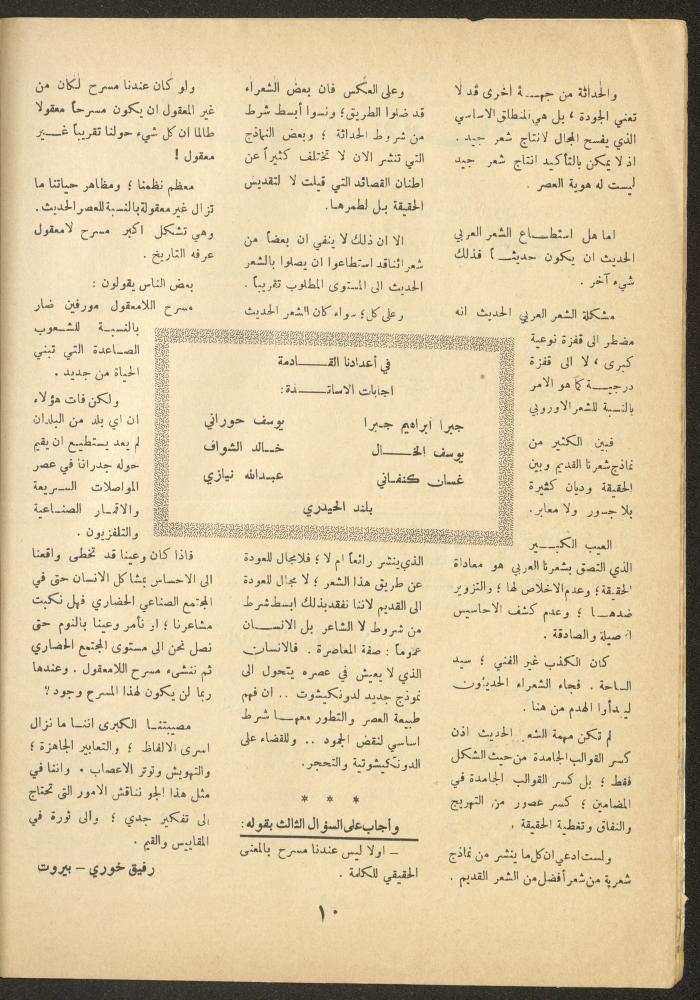 والحداثة من جهة أخرى قد لا
تعني الجودة ، بل هي المنطلق الاساسي
الذي يفسح المجال لانتاج شعر جيد .
اذ لا يمكن بالتأكيد انتاج شعر جيد
ليست له هوية العصر .
اما هل استطاع الشعر العربي
الحديث ان يكون حديثاً فذلك
شيء آخر .
مشكلة الشعر العربي الحديث انه
مضطر الى قفزة نوعية
كبرى ، لا الى قفزة
درجية كما هو الامر
بالنسبة للشعر الاوروبي
فبين الكثير من
نماذج شعرنا القديم وبين
الحقيقة وديان كثيرة
بلا جسور ولا معابر .
العيب الكبير
الذي التصق بشعرنا العربي هو معاداة
الحقيقة ؛ وعدم الاخلاص لها ؛ والتزوير
ضدها ؛ وعدم كشف الاحاسيس
الاصيلة والصادقة .
كان الكذب غير الفني ؛ سيد
الساحة . فجاء الشعراء الحديثون
ليبدأوا الهدم من هنا .
لم تكن مهمة الشعر الحديث اذن
كسر القوالب الجامدة من حيث الشكل
فقط ؛ بل كسر القوالب الجامدة في
المضامين ؛ كسر عصور من التهريج
والنفاق وتغطية الحقيقة .
ولست ادعي ان كل ما ينشر من نماذج
شعرية من شعر أفضل من الشعر القديم .
وعلى العكس فان بعض الشعراء
قد ضلوا الطريق ؛ ونسوا أبسط شرط
من شروط الحداثة ؛ وبعض النماذج
التي تنشر الان لا تختلف كثيراً عن
اطنان القصائد التي قيلت لا لتقديس
الحقيقة بل لطمرها .
الا ان ذلك لا ينفي ان بعضاً من
شعرائنا قد استطاعوا ان يصلوا بالشعر
الحديث الى المستوى المطلوب تقريباً .
وعلى كل ؛ سواء كان الشعر الحديث
في أعدادنا القادمة
اجابات الاساتذة :
جبرا ابراهيم جبرا
يوسف حوراني
يوسف الخال
خالد الشواف
غسان كنفاني
عبدالله نيازي
بلند الحيدري
الذي ينشر رائعاً ام لا ؛ فلا مجال للعودة
عن طريق هذا الشعر ؛ لا مجال للعودة
الى القديم لاننا نفقد بذلك ابسط شرط
من شروط لا الشاعر بل الانسان
عموماً : صفة المعاصرة . فالانسان
الذي لا يعيش في عصره يتحول الى
نموذج جديد لدونكيشوت .. ان فهم
طبيعة العصر والتطور معها شرط
اساسي لنقض الجمود .. وللقضاء على
الدونكيشوتية والتحجر .
* * *
وأجاب على السؤال الثالث بقوله :
– اولا ليس عندنا مسرح بالمعنى
الحقيقي للكلمة .
ولو كان عندنا مسرح لكان من
غير المعقول ان يكون مسرحاً معقولا
طالما ان كل شيء حولنا تقريباً غير
معقول !
معظم نظمنا ؛ ومظاهر حياتنا ما
تزال غير معقولة بالنسبة للعصر الحديث .
وهي تشكل اكبر مسرح لا معقول
عرفه التاريخ .
بعض الناس يقولون :
مسرح اللامعقول مورفين ضار
بالنسبة للشعوب
الصاعدة التي تبني
الحياة من جديد .
ولكن فات هؤلاء
ان اي بلد من البلدان
لم يعد يستطيع ان يقيم
حوله جدرانا في عصر
المواصلات السريعة
والاقمار الصناعية
والتلفزيون .
فاذا كان وعينا قد تخطى واقعنا
الى الاحساس بمشاكل الانسان حتى في
المجتمع الصناعي الحضاري فهل نكبت
مشاعرنا ؛ او نأمر وعينا بالنوم حتى
نصل نحن الى مستوى المجتمع الحضاري
ثم ننشىء مسرح اللامعقول . وعندها
ربما لن يكون لهذا المسرح وجود ؟
مصيبتنا الكبرى اننا ما نزال
اسرى الالفاظ ؛ والتعابير الجاهزة ؛
والتهويش وتوتر الاعصاب . واننا في
مثل هذا الجو نناقش الامور التي تحتاج
الى تفكير جدي ؛ والى ثورة في
المقاييس والقيم .
رفيق خوري – بيروت
١٠